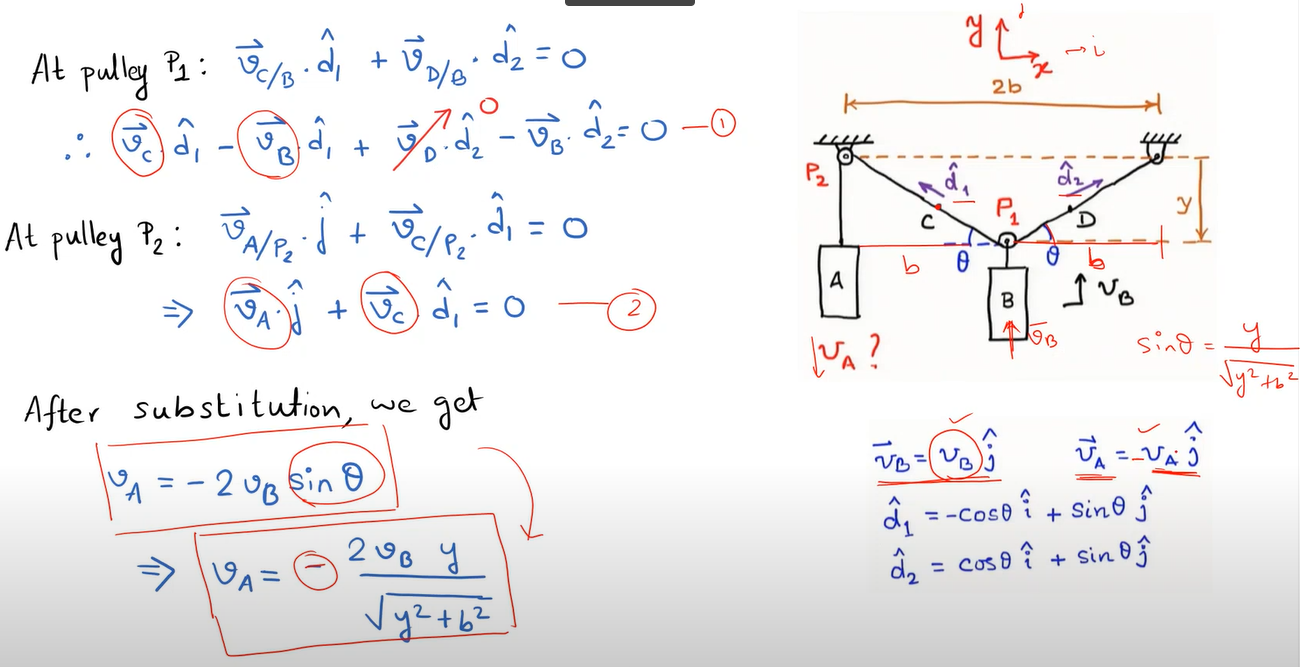 At pulley P₁: v⃗_C/B · d̂₁ + v⃗_D/B · d̂₂ = 0
∴ v⃗_C · d̂₁ − v⃗_B · d̂₁ + v⃗_D · d̂₂ − v⃗_B · d̂₂ = 0 — ①
0
At pulley P₂: v⃗_A/P₂ · ĵ + v⃗_C/P₂ · d̂₁ = 0
⇒ v⃗_A · ĵ + v⃗_C d̂₁ = 0 — ②
After substitution, we get
v_A = − 2 v_B sin θ
⇒ v_A = − 2 v_B y / √(y² + b²)
y
x
→ i
2b
P₂
d̂₁
d̂₂
C
P₁
D
y
b
θ
θ
b
A
B
v_B
v̄_B
v_A ?
sinθ = y / √(y² + b²)
v⃗_B = v_B ĵ
v⃗_A = −v_A ĵ
d̂₁ = −cosθ î + sinθ ĵ
d̂₂ = cosθ î + sinθ ĵ